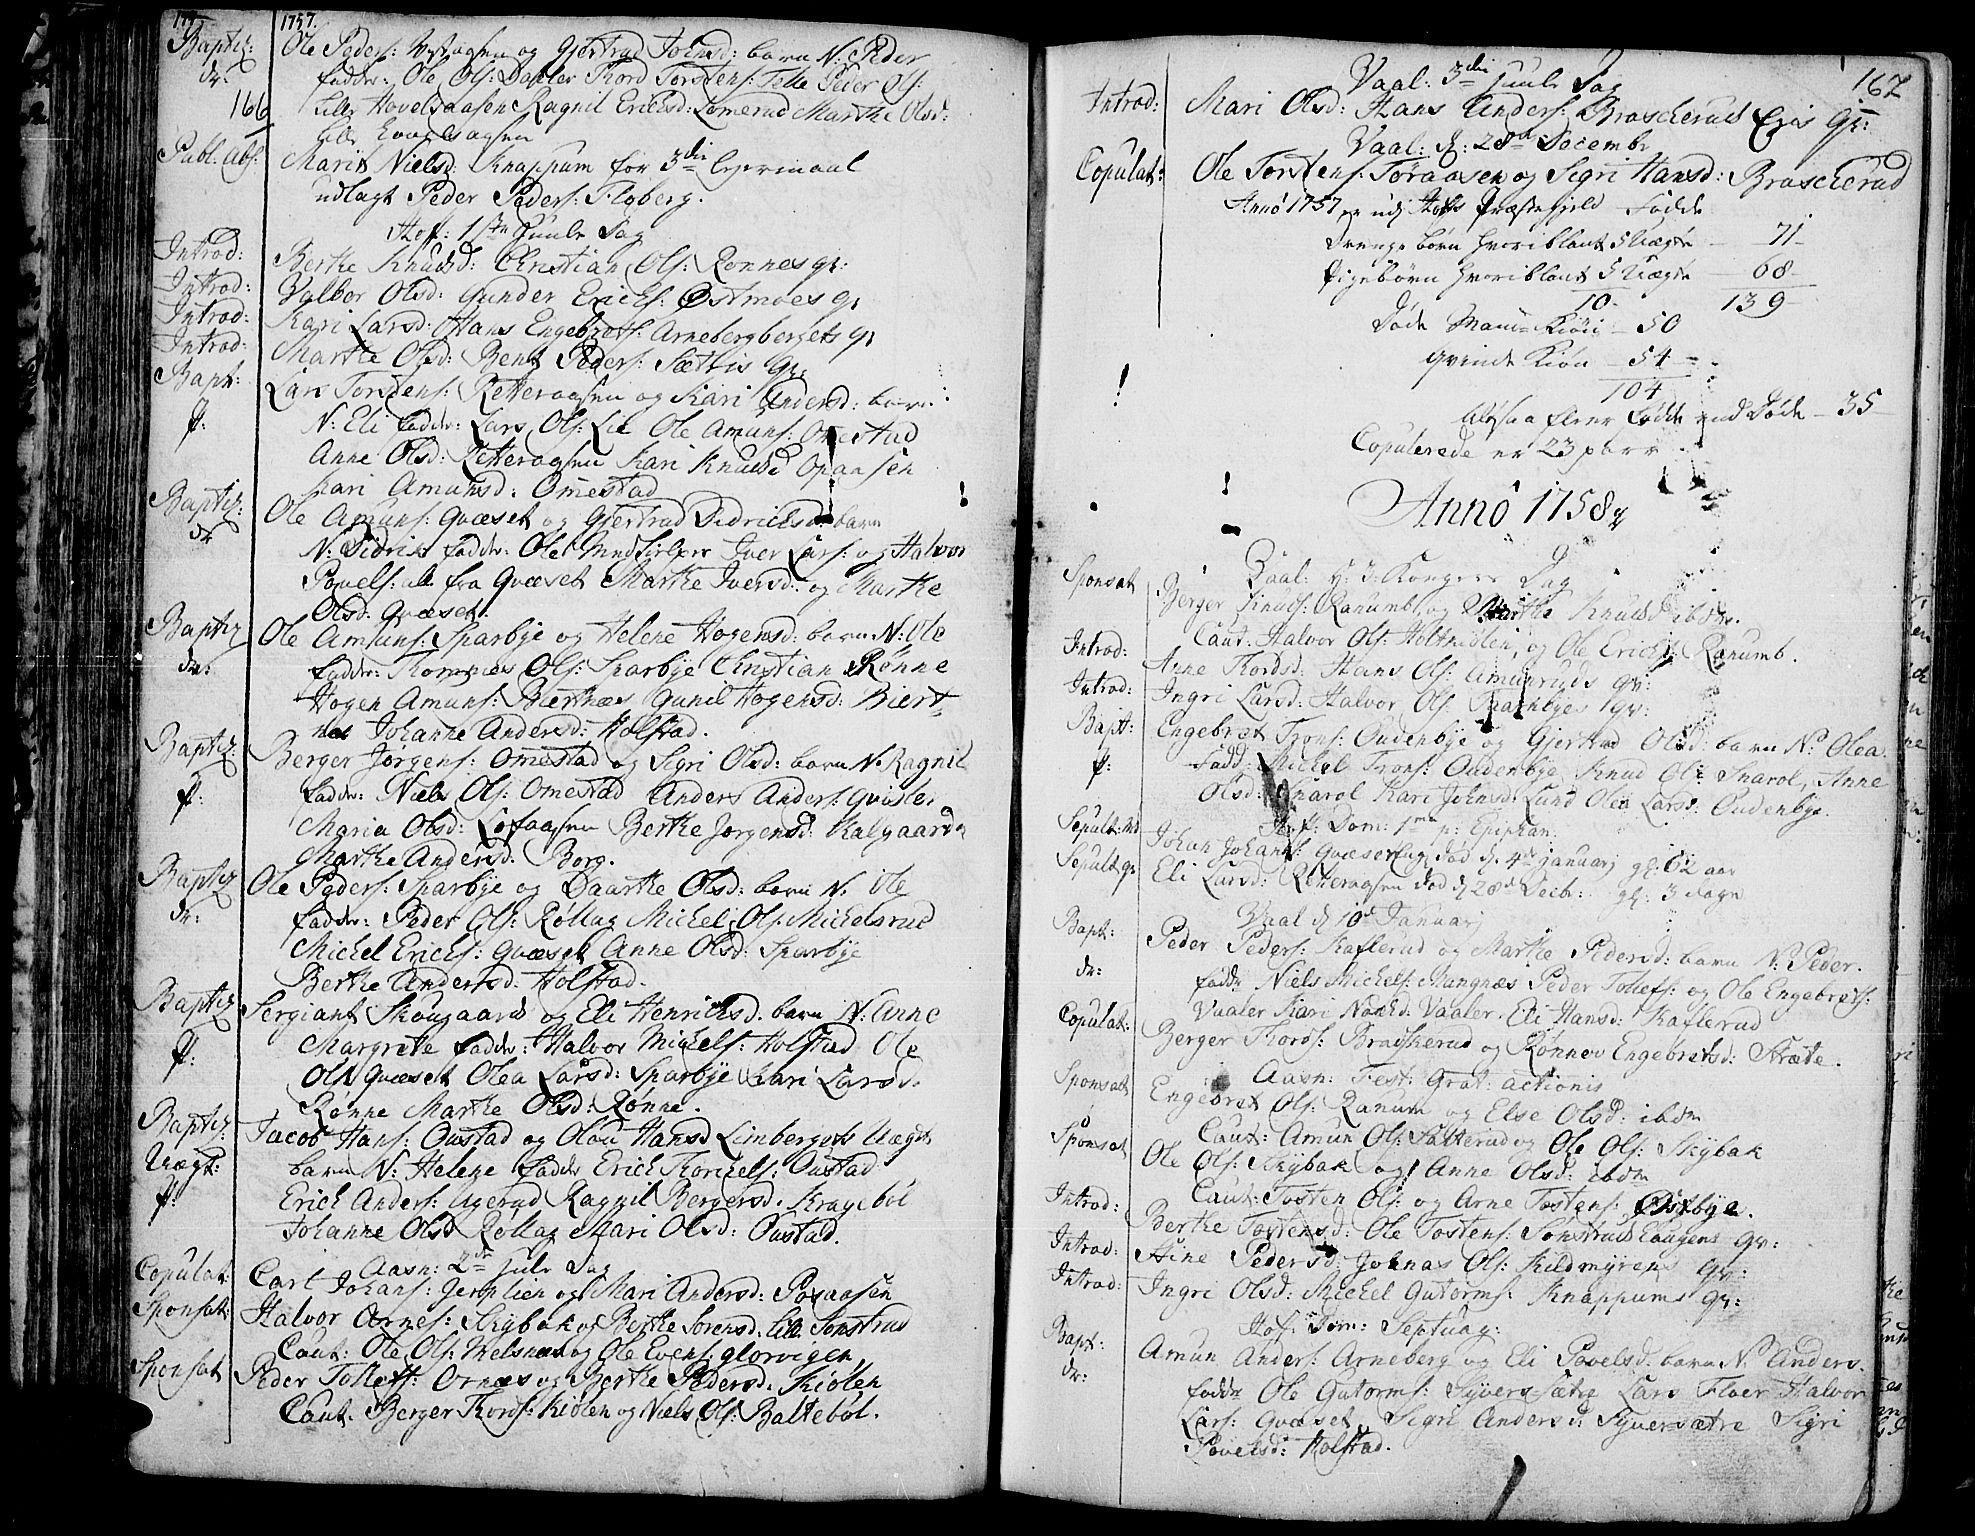 1757.
Baptiz: Ole Peders: og Gjertrud Johnsd: barn N: Peder
dr: fadder: Ole Ols: Daaler Thord Torstens: Peder Ols:
166 lille Hovelsaasen Ragnil Erichsd: Lomerud Marthe Olsd:
lille
Publ: Abs: Marit Nielsd: Knappum for 3die Leyermaal
udlagt Peder Peders: Floberg.
Hof: 1ste Juule Dag
Introd: Berthe Knudsd: Christian Ols: Rønnes qv:
Introd: Valbor Olsd: Gunder Erichs: Østmoes qv
Introd: Kari Larsd: Hans Engebrets: Arnebergbergets qv
Introd: Marthe Olsd: Bent Peders: Sætris qv:
Bapt: Lars Torstens: Retteraasen og Kari Andersd: barn
p: N: Eli fadder: Lars Ols: Lie Ole Amuns: Omestad
Anne Olsd: Retteraasen Kari Knudsd Opaasen
Kari Amunsd: Omestad
Baptiz: Ole Amuns: Qvæset og Gjertrud Didrichsd: barn
dr N: Didrik fadder: Ole Iver Lars: og Halvor
Povels: alle fra Qvæset Marthe Iversd: og Marthe
Olsd: Qvæset.
Baptiz Ole Amuns: Sparbye og Helene Hogensd: barn N: Ole
dr: fadder: Thomas Ols: Sparbye Christian Rønne
Hogen Amuns: Biertnæs Gunil Hogensd: Biert-
næs Johanne Andersd: Holstad.
Baptiz: Berger Jørgens: Omestad og Sigri Olsd: barn N: Ragnil
p: fadder: Niels Ols: Omestad Anders Anders: Qvisler
Maria Olsd: Løfaasen Berthe Jørgensd: Kalgaarden
Marthe Andersd: Borg.
Baptiz Ole Peders: Sparbye og Daarthe Olsd: barn N: Ole
dr: fadder: Peder Ols: Røllag Michel Ols: Michelsrud
Michel Erichs: Qvæset Anne Olsd: Sparbye
Berthe Andersd: Holstad.
Baptiz Sergiant Skougaard og Eli Henrichsd: barn N: Anne
p: Margrethe fadder: Halvor Michels: Holstad Ole
Ols Qvæset Olea Larsd: Sparbye Kari Larsd:
Rønne Marthe Olsd: Rønne.
Baptiz: Jacob Hans: Oustad og Olau Hansd Limbergets Uægte
Uægt: barn N: Helene fadder Erich Thorkels: Oustad
p: Erich Anders: Ugerud Ragnil Bergersd: Kragebøl
Johanne Olsd Røllag Mari Olsd: Oustad.
Aasn: 2den Jule Dag
Copulat: Carl Johans: Jerplien og Mari Andersd: Posaasen
Sponsat: Halvor Arnes: Skybak og Berthe Sørensd: lille Sønstrud
Caut: Ole Ols: Melsnæs og Ole Evens: Glorvigen
Sponsat Peder Tollefs: Ornæs og Berthe Pedersd: Kiølen
Caut: Berger Thords: Kiølen og Niels Ols: Baltebøl.
167
Vaal: 3die Juule Dag
Introd: Mari Olsd: Hans Anders: Brascherud Eris qv:
Vaal: d: 28de Decembr
Copulat: Ole Torstens: Toraasen og Sigri Hansd: Brascherud
Anno 1757 er udj Hofs Præstegield Fødde
Drengebørn hvoriblant 5 Uægte 71
Pigebørn hvoriblant 5 Uægte 68
10 139
Døde Mand-Kiøn 50
qvinde Kiøn 54
104
Altsaa flere Fødde end Døde 35
Copulerede er 23 parr
Anno 1758
Vaal: H: 3: Konger Dag
Sponsat Berger Knuds: Ranumb og Marthe Knudsd ibdm.
Caut: Halvor Ols: Holtmølen, og Ole Erichs: Ranumb.
Introd: Anne Thordsd: Hans Ols: Amunruds qv:
Introd: Ingri Larsd: Halvor Ols: qv:
Bapt: Engebret Trons: Oudenbye og Gjertrud Olsd: barn No Olea.
p: Fadd: Michel Trons: Oudenbye Knud Ols Snarol, Anne
Olsd: Snarol Kari Johnsd: Lund Olea Larsd: Oudenbye.
Hof: Dom: 1ma p: Epiphan:
Sepult: M Johan Johans: Qvæsethug død d. 4de Januarj gl: 62 aar
Sepult: q Eli Larsd: Retteraasen død d 28de Decbr: gl: 3 dage
Vaal d 10de Januarj
Bapt: Peder Peders: Kaflerud og Marthe Pedersd: barn N: Peder.
dr: fadd: Niels Michels: Mangnæs Peder Tollefs: og Ole Engebrets:
Vaaler Kari Vaaler. Eli Hansd: Kaflerud
Copulat: Berger Thords: Braskerud og Rønnov Engebretsd: Stræte.
Aasn: Fest: Grat: actionis
Sponsat Engebret Ols: Ranum og Else Olsd: ibdm
Caut: Amun Ols: Satterud og Ole Ols: Skybak
Sponsat Ole Ols: Skybak og Anne Olsd: ibdm
Caut: Tosten Ols: og Arne Tostens: Østbye.
Introd: Berthe Tostensd: Ole Tostens: Sønstrud Eaugens qv:
Introd: Stine Pedersd: Johnas Ols: Kildmyrens qv:
Introd: Ingri Olsd: Michel Gutorms: Knappums qv:
Hof: Dom: Septuag:
Bapt: Amun Anders: Arneberg og Eli Povelsd: barn N: Anders.
dr: fadder Ole Gutorms: Syversætre Lars Floer Halvor
Lars: Qvæset, Sigri Andersd: Syversætre Sigri
Povelsd: Holstad.